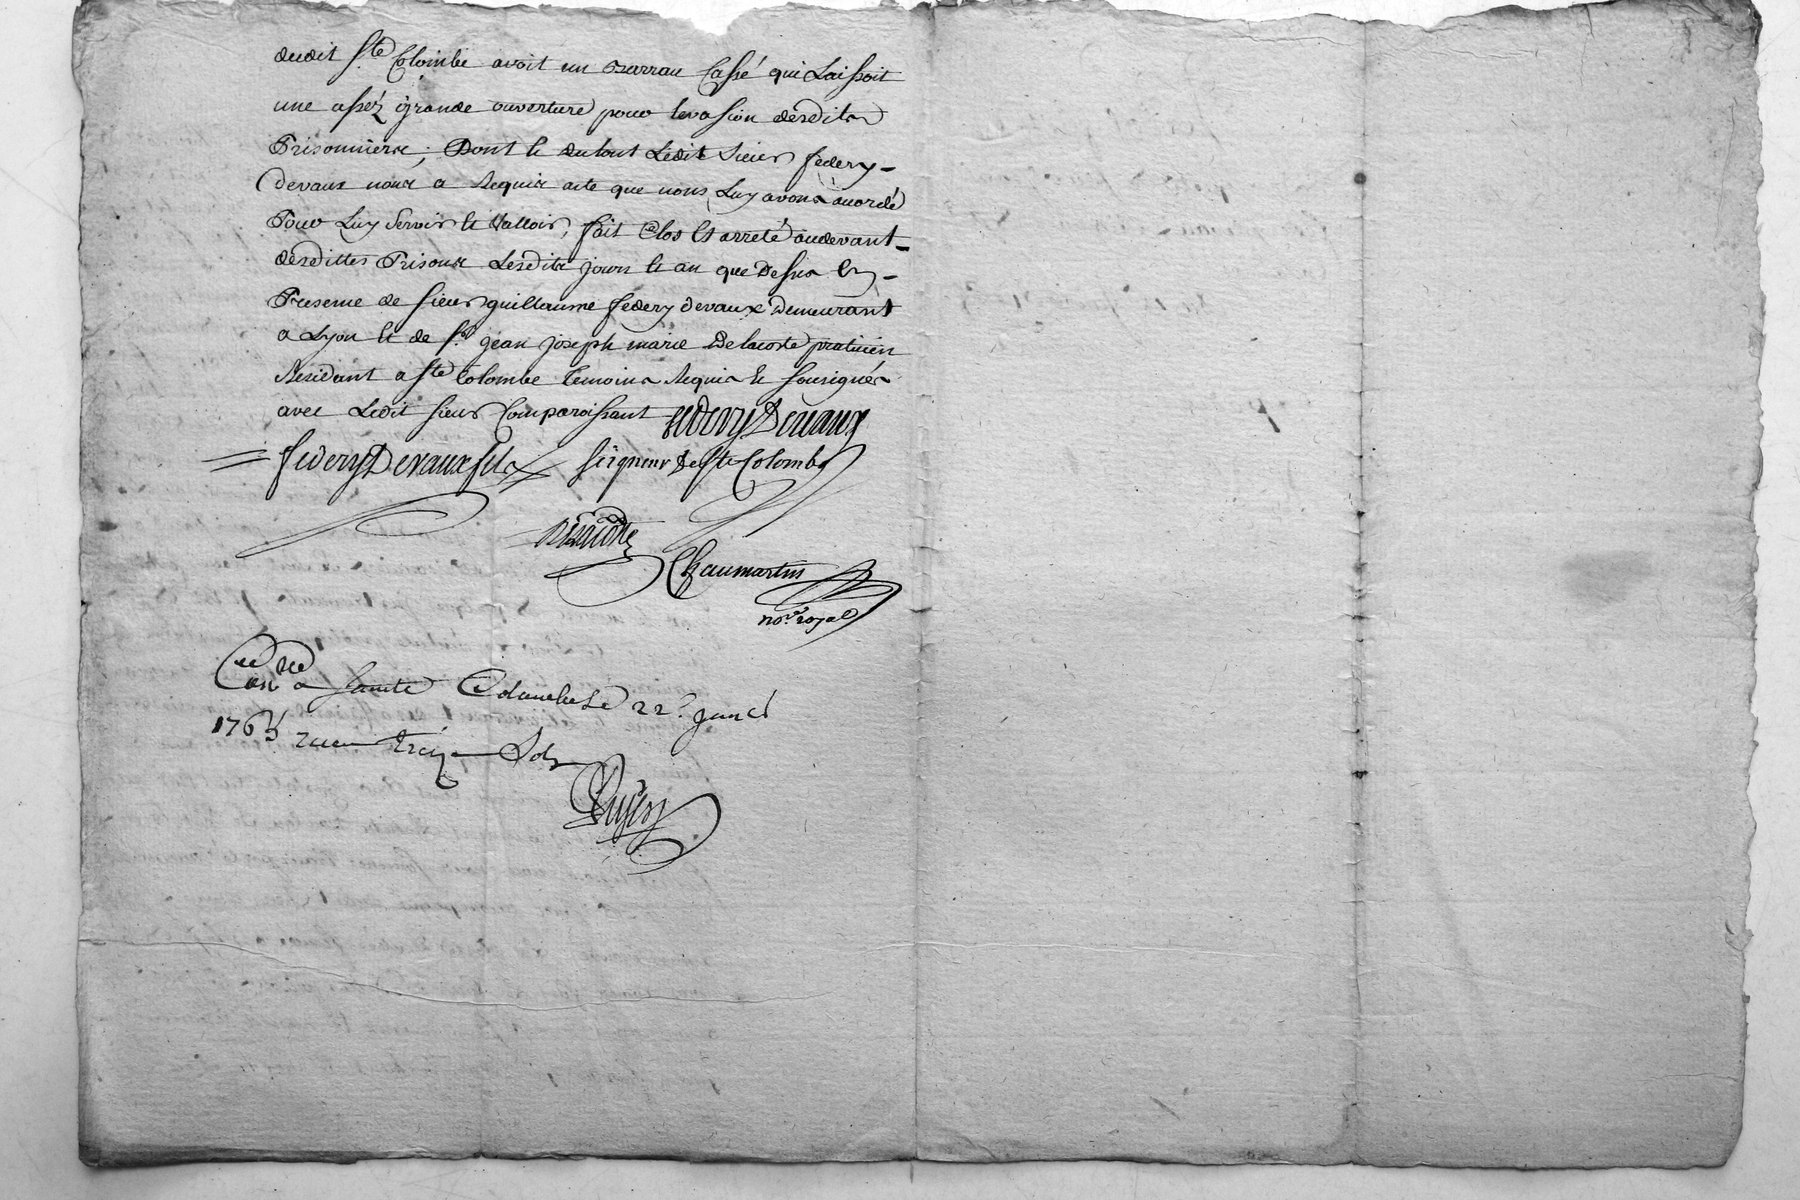 dudit Ste Colombe avoit un Barrau Cassé qui Laissoit
une assez grande ouverture pour levasion desdits
Prisonniers; Dont le du tout Ledit Sieur federy-
devaux nous a Requis acte que nous Luy avons acordé
Pour Luy Servir et Valloir, fait Clos Et arreté audevant-
desdittes Prisons Lesdits jours et an que Dessus En-
Presence de Sieur guillaume federy devaux Demeurant
a Lyon et de Sr. jean joseph marie Delacoste praticien
Residant a Ste Colombe Temoins Requis et Sousignés
avec Ledit Sieur Comparoissant federy Devaux
federy Devaux fils Seigneur De Ste Colombe
Delacoste
Chaumartin
nore. royal
Conlé a Sainte Colombe Le 22e. Juin
1763 receu treize Sols